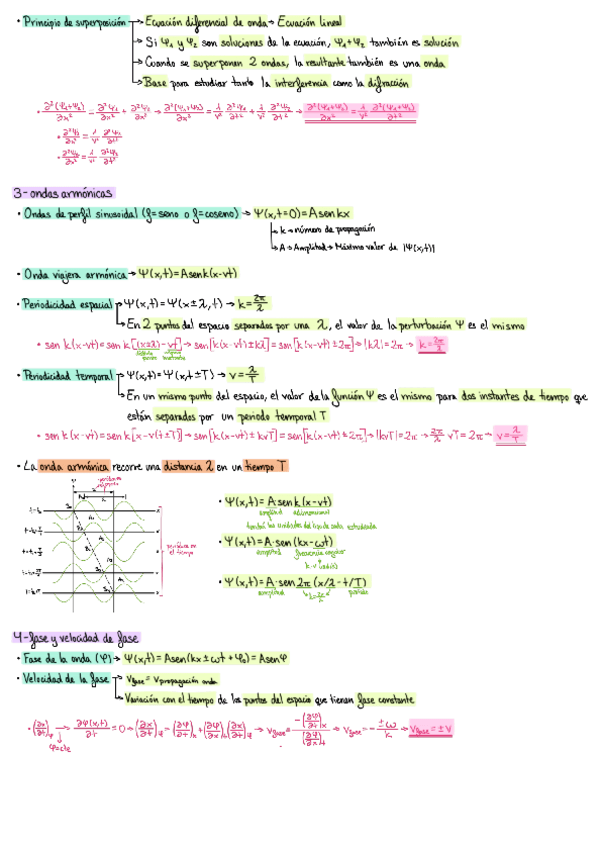 · Principio de superposición → Ecuación diferencial de onda → Ecuación lineal
→ Si Ψ₁ y Ψ₂ son soluciones de la ecuación, Ψ₁+Ψ₂ también es solución
→ Cuando se superponen 2 ondas, la resultante también es una onda
→ Base para estudiar tanto la interferencia como la difracción
· ∂²(Ψ₁+Ψ₂)/∂x² = ∂²Ψ₁/∂x² + ∂²Ψ₂/∂x² → ∂²(Ψ₁+Ψ₂)/∂x² = 1/v² ∂²Ψ₁/∂t² + 1/v² ∂²Ψ₂/∂t² → ∂²(Ψ₁+Ψ₂)/∂x² = 1/v² ∂²(Ψ₁+Ψ₂)/∂t²
· ∂²Ψ₁/∂x² = 1/v² ∂²Ψ₁/∂t²
· ∂²Ψ₂/∂x² = 1/v² ∂²Ψ₂/∂t²
3-ondas armónicas
· Ondas de perfil sinusoidal (f=seno o f=coseno) → Ψ(x,t=0)=A sen kx
→ k → número de propagación
→ A → Amplitud → Máximo valor de |Ψ(x,t)|
· Onda viajera armónica → Ψ(x,t)=A sen k(x-vt)
· Periodicidad espacial → Ψ(x,t)=Ψ(x±λ,t) → k=2π/λ
→ En 2 puntos del espacio separados por una λ, el valor de la perturbación Ψ es el mismo
· sen k(x-vt)=sen k[(x±λ)-vt] → sen[k(x-vt)±kλ]=sen[k(x-vt)±2π] → |kλ|=2π → k=2π/λ
· Periodicidad temporal → Ψ(x,t)=Ψ(x,t±T) → v=λ/T
→ En un mismo punto del espacio, el valor de la función Ψ es el mismo para dos instantes de tiempo que
están separados por un periodo temporal T
· sen k(x-vt)=sen k[x-v(t±T)] → sen[k(x-vt)±kvT]=sen[k(x-vt)±2π] → |kvT|=2π → 2π/λ vT=2π → v=λ/T
· La onda armónica recorre una distancia λ en un tiempo T
periódica en el tiempo
· Ψ(x,t)=A·sen k(x-vt)
amplitud
· Ψ(x,t)=A·sen(kx-ωt)
amplitud frecuencia angular
· Ψ(x,t)=A·sen 2π(x/λ-t/T)
amplitud k=2π/λ periodo
4-fase y velocidad de fase
· Fase de la onda (φ) → Ψ(x,t)=A sen(kx±ωt+φ₀)=A sen φ
· Velocidad de la fase → v fase = v propagación onda
→ Variación con el tiempo de los puntos del espacio que tienen fase constante
φ=cte